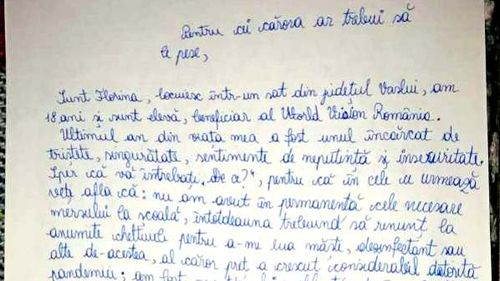 Pentru cei cărora ar trebui să
le pese,
Sunt Florina, locuiesc într-un sat din județul Vaslui, am
18 ani și sunt elevă, beneficiar al World Vision România.
Ultimul an din viața mea a fost unul încărcat de
tristețe, singurătate, sentimente de neputință și insecuritate.
Sper că vă întrebați „De ce?", pentru că în cele ce urmează
veți afla că: nu am avut în permanență cele necesare
mersului la școală, întotdeauna trebuind să renunț la
anumite cheltuieli pentru a-me lua măști, dezinfectant sau
alte de-acestea, al căror preț a crescut considerabil datorită
pandemiei; am fost